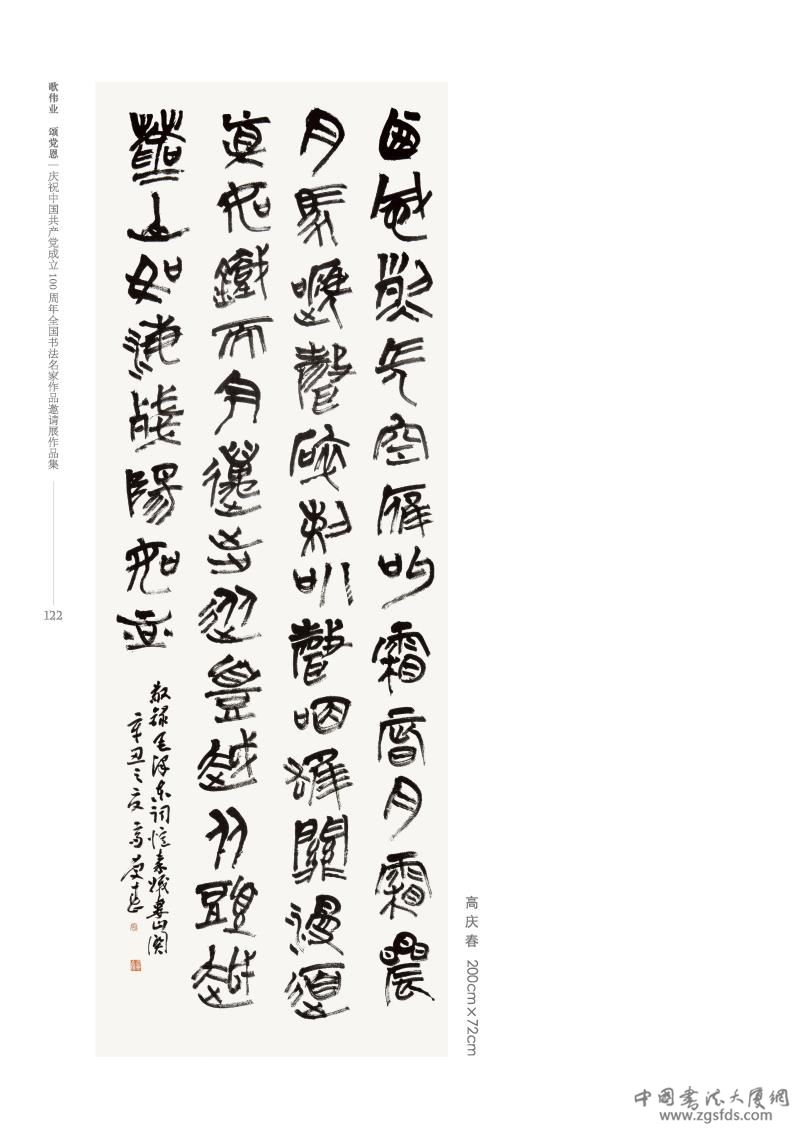 歌伟业 颂党恩 | 庆祝中国共产党成立100周年全国书法名家作品邀请展作品集
122
西風烈長空雁叫霜晨月霜晨
月馬蹄聲碎喇叭聲咽雄關漫道
真如鐵而今邁步從頭越從頭越
蒼山如海殘陽如血
敬録毛泽东词忆秦娥娄山関
辛丑之夏高庆春
高庆春 200cm×72cm
中国書法大厦網
www.zgsfds.com